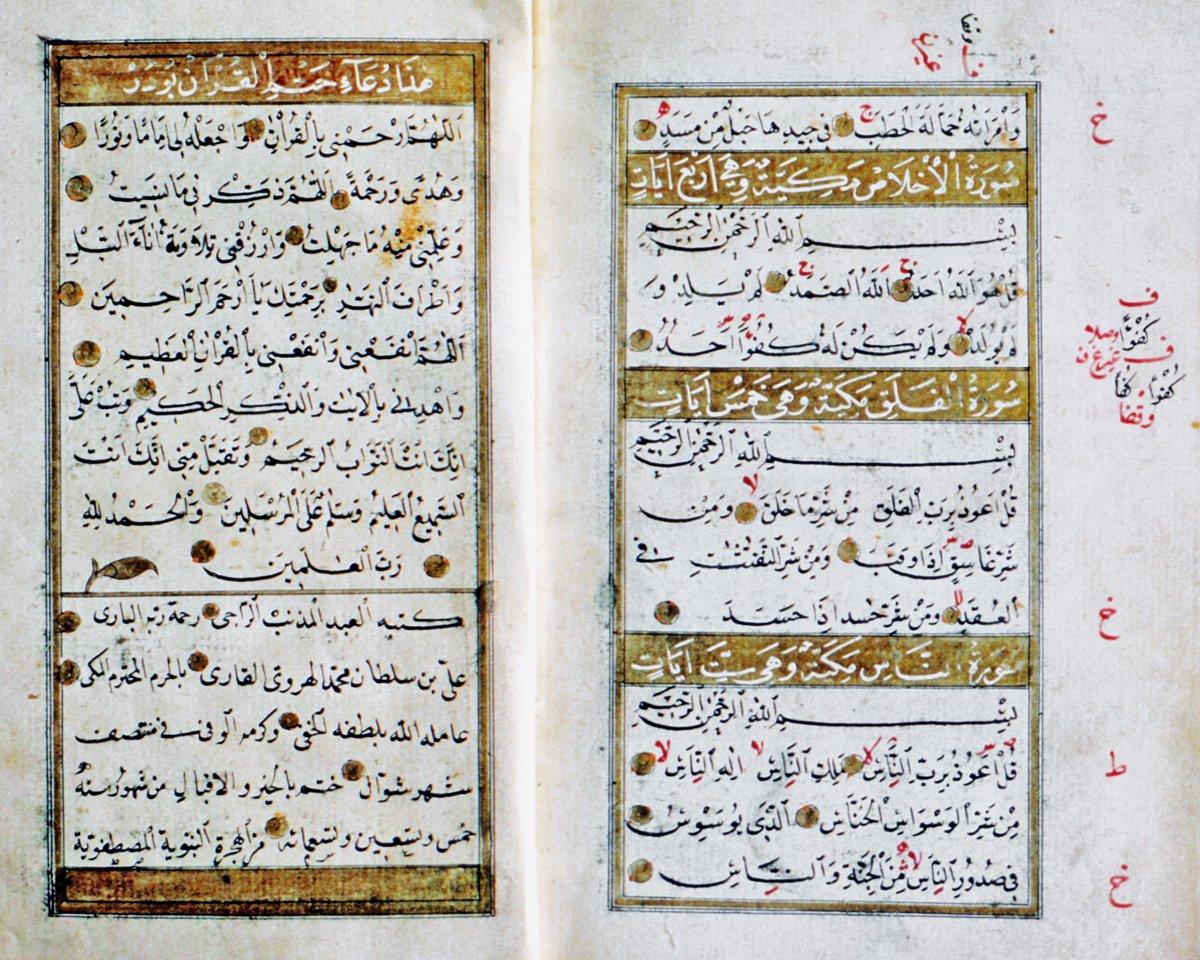 وَامْرَاَتُهُ حَمَّالَةَ الْحَطَبِ فِى جِيدِهَا حَبْلٌ مِنْ مَسَدٍ
سُورَةُ الْأِخْلَاصِ مَكِيَّةٌ وَهِىَ اَرْبَعُ اٰيَاتٍ
بِسْمِ اللّٰهِ الرَّحْمٰنِ الرَّحِيمِ
قُلْ هُوَ اللّٰهُ اَحَدٌ اَللّٰهُ الصَّمَدُ لَمْ يَلِدْ وَ
لَمْ يُولَدْ وَلَمْ يَكُنْ لَهُ كُفُوًا اَحَدٌ
سُورَةُ الْفَلَقِ مَكِيَّةٌ وَهِىَ خَمْسُ اٰيَاتٍ
بِسْمِ اللّٰهِ الرَّحْمٰنِ الرَّحِيمِ
قُلْ اَعُوذُ بِرَبِّ الْفَلَقِ مِنْ شَرِّ مَا خَلَقَ وَمِنْ
شَرِّ غَاسِقٍ اِذَا وَقَبَ وَمِنْ شَرِّ النَّفَّثٰتِ فِى
الْعُقَدِ وَمِنْ شَرِّ حَسِدٍ اِذَا حَسَدَ
سُورَةُ النَّاسِ مَكِيَّةٌ وَهِىَ سِتُّ اٰيَاتٍ
بِسْمِ اللّٰهِ الرَّحْمٰنِ الرَّحِيمِ
قُلْ اَعُوذُ بِرَبِّ النَّاسِ مَلِكِ النَّاسِ اِلٰهِ النَّاسِ
مِنْ شَرِّ الْوَسْوَاسِ الْخَنَّاسِ اَلَّذِى يُوَسْوِسُ
فِى صُدُورِ النَّاسِ مِنَ الْجِنَّةِ وَالنَّاسِ
خ
ف
كُفْوًا وصلا
كُفُوًا كُفًا
وقفا
خ
ط
خ
هٰذَا دُعَاءِ خَتْمِ الْقُرْاٰنْ بُودُرْ
اَللّٰهُمَّ ارْحَمْنِى بِالْقُرْاٰنِ وَاجْعَلْهُ لِى اِمَامًا وَنُورًا
وَهُدًى وَرَحْمَةً اَللّٰهُمَّ ذَكِّرْنِى مَا نَسِيتُ
وَعَلِّمْنِى مِنْهُ مَا جَهِلْتُ وَارْزُقْنِى تِلَاوَتَهُ اٰنَاءَ الَّيْلِ
وَاَطْرَافَ النَّهَارِ بِرَحْمَتِكَ يَا اَرْحَمَ الرَّاحِمِينَ
اَللّٰهُمَّ انْفَعْنِى وَانْفَعْنِى بِالْقُرْاٰنِ الْعَظِيمِ
وَاهْدِنِى بِالْاٰيٰتِ وَالذِّكْرِ الْحَكِيمِ وَتُبْ عَلَىَّ
اِنَّكَ اَنْتَ التَّوَّابُ الرَّحِيمُ وَتَقَبَّلْ مِنِّى اِنَّكَ اَنْتَ
السَّمِيعُ الْعَلِيمُ وَسَلَامٌ عَلَى الْمُرْسَلِينَ وَالْحَمْدُ لِلّٰهِ
رَبِّ الْعٰلَمِينَ
كتبه العبد المذنب الراجى رحمة ربه البارى
على بن سلطان محمد الهروى القارى بالحرم المحترم المكى
عامله الله بلطفه الخفى وكرمه الوفى فى منتصف
شهر شوال ختم بالخير والاقبال من شهور سنة
خمس وتسعين وتسعمائة من الهجرة النبوية المصطفوية